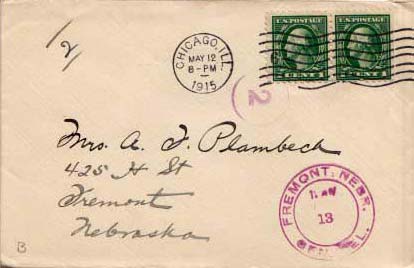 1/2
U.S. POSTAGE U.S. POSTAGE
CENT 1 CENT 1
CHICAGO, ILL.
MAY 12
8-PM
1915
2
Mrs. A. F. Plambeck
425 H St
Fremont
Nebraska
FREMONT, NEBR.
13
DEL.
B